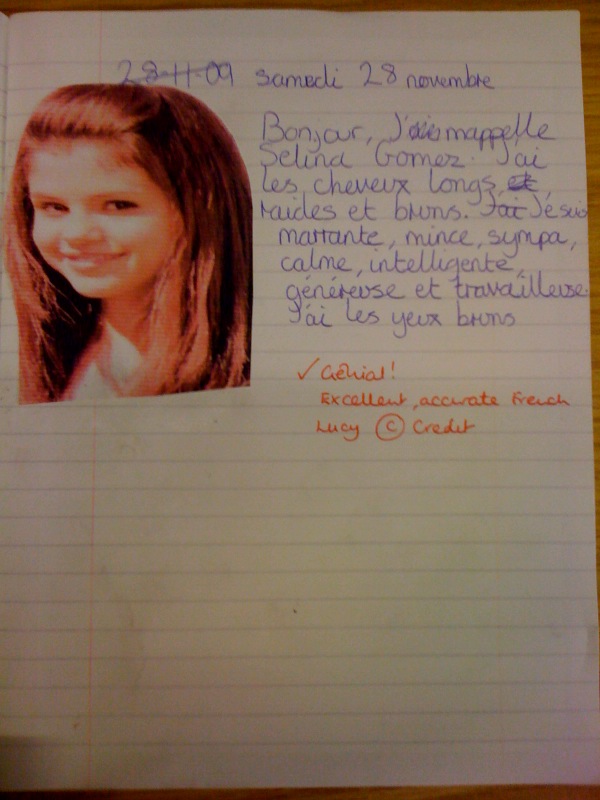 28-11-09 samedi 28 novembre
Bonjour, J' mappelle
Selina Gomez. J'ai
les cheveux longs, et
raides et bruns. J'ai Jésuis
marrante, mince, sympa,
calme, intelligente,
généreuse et travailleuse.
J'ai les yeux bruns
✓ Génial!
Excellent, accurate French
Lucy © Credit